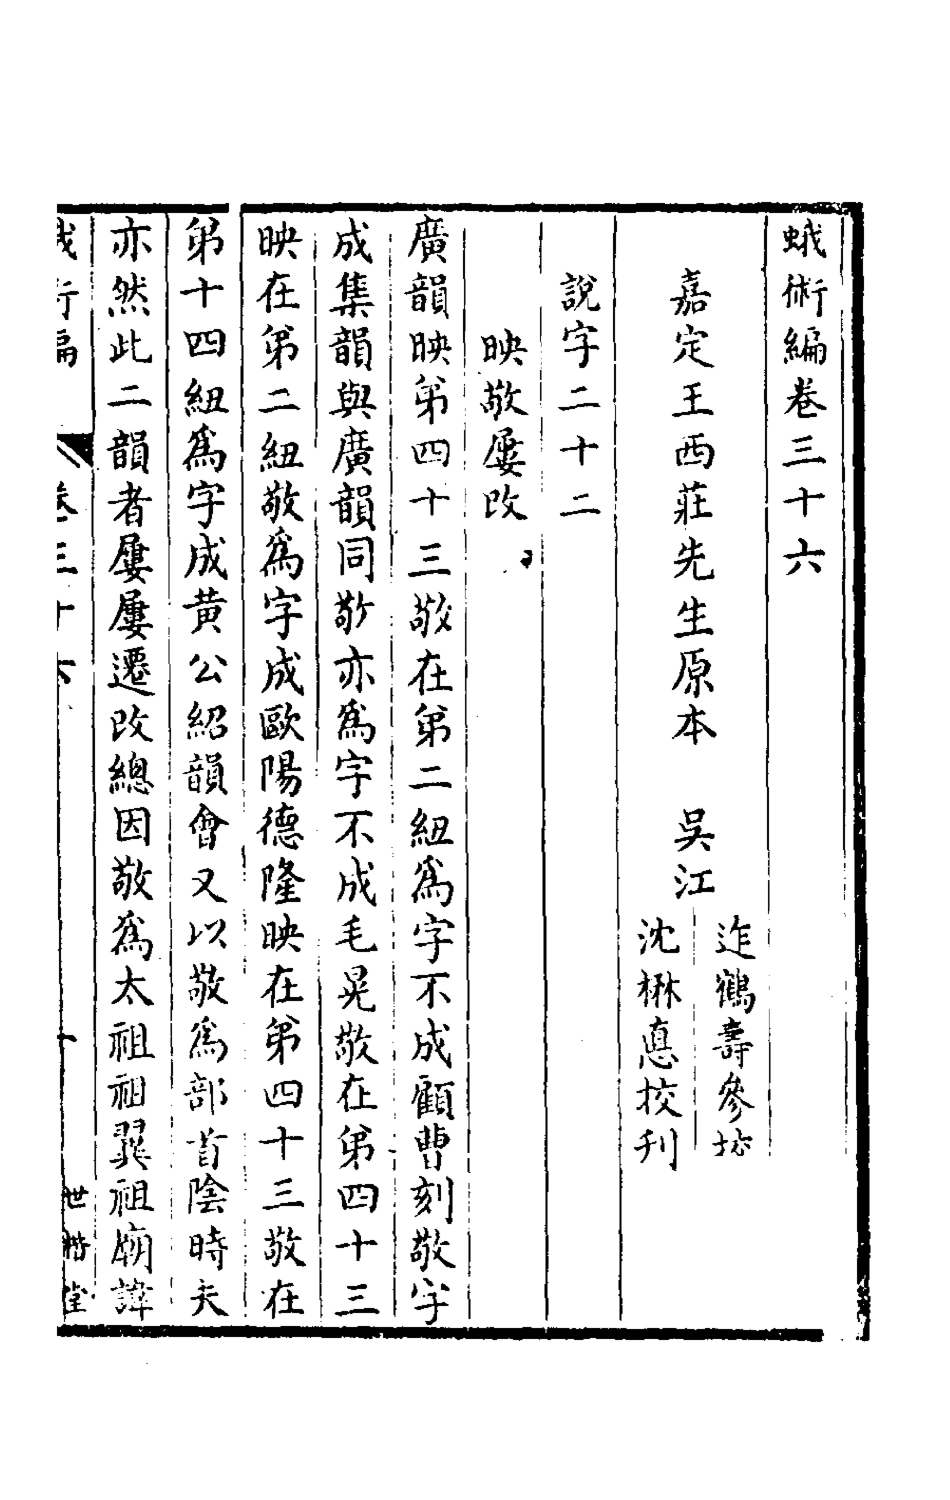 蛾術編卷三十六
嘉定王西莊先生原本　吳江
迮鶴壽參校
沈楙悳校刊
說字二十二
映敬屢改
廣韻映第四十三敬在第二紐爲字不成顧曹刻敬字
成集韻與廣韻同敬亦爲字不成毛晃敬在第四十三
映在第二紐敬爲字成歐陽德隆映在第四十三敬在
第十四紐爲字成黄公紹韻會又以敬爲部首陰時夫
亦然此二韻者屢屢遷改總因敬爲太祖祖翼祖廟諱
蛾術編　卷三十六　一　世楷堂